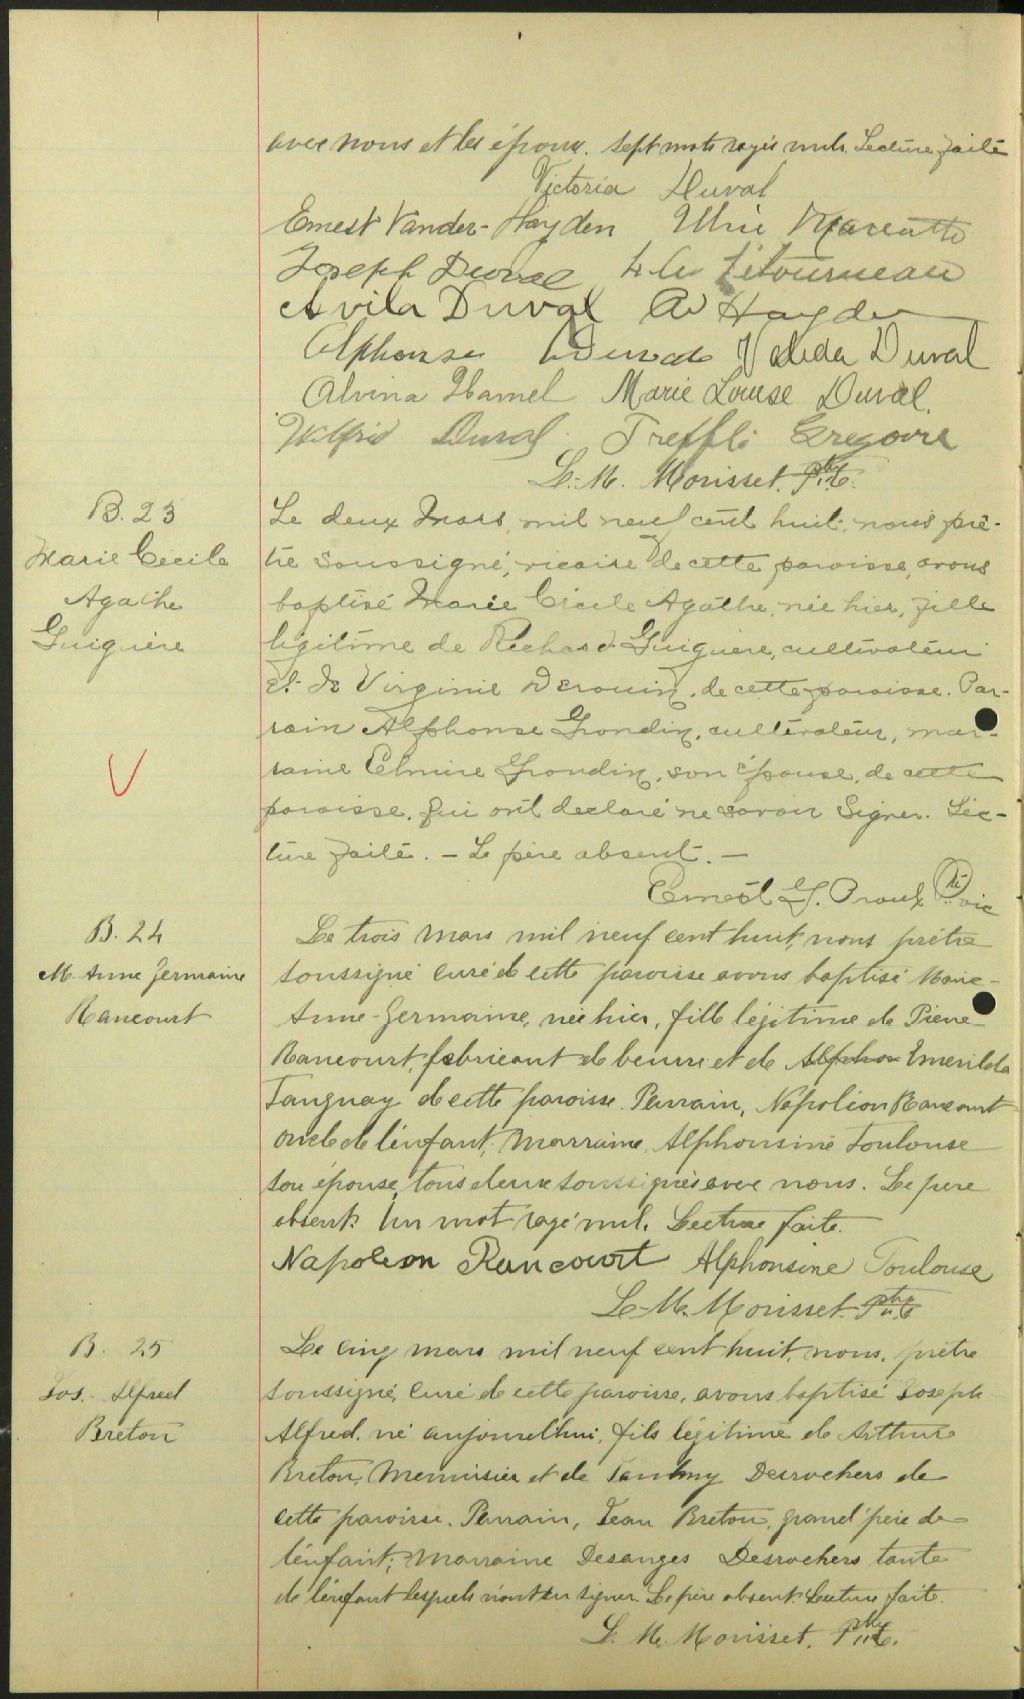 avec nous et les époux. Sept mots rayés nuls. Lecture faite
Victoria Duval
Ernest Vander-Hayden Marcotte
Joseph Duval Létourneau
Avila Duval Hayden
Alphonse Valeda Duval
Alvina Hamel Marie Louise Duval.
Wilfrid Duval. Treffli Gregoire
L.-M. Morisset. Ptre
B. 23
Marie Cecile
Agathe
Guiguère
Le deux Mars, mil neuf cent huit, nous prê-
tre soussigné, vicaire de cette paroisse, avons
baptisé Marie Cécile Agathe, née hier, fille
légitime de Richard Guiguere, cultivateur
et de Virginie Drouin, de cette paroisse. Par-
rain Alphonse Grondin, cultivateur, mar-
raine Elmire Grondin, son épouse, de cette
paroisse, qui ont declaré ne savoir Signer. Lec-
ture faite. — Le père absent. —
Ernest G. Proulx Ptre vic
B. 24
M. Anne Germaine
Rancourt
Le trois mars mil neuf cent huit, nous prêtre
soussigné curé de cette paroisse avons baptisé Marie-
Anne-Germaine, née hier, fille légitime de Pierre
Rancourt, fabricant de beurre et de Alphon Emerilda
Tanguay de cette paroisse. Parrain, Napoléon Rancourt
oncle de l'enfant; marraine, Alphonsine Toulouse
son épouse, tous deux soussignés avec nous. Le père
absent. Un mot rayé nul. Lecture faite.
Napoleon Rancourt Alphonsine Toulouse
L.-M. Morisset. Ptre
B. 25
Jos. Alfred
Breton
Le cinq mars mil neuf cent huit, nous, prêtre
soussigné, curé de cette paroisse, avons baptisé Joseph
Alfred, né aujourd'hui, fils légitime de Arthur
Breton, menuisier et de Desrochers de
cette paroisse. Parrain, Jean Breton, grand'père de
l'enfant; Marraine Desanges Desrochers tante
de l'enfant lesquels n'ont su signer. Le père absent. Lecture faite.
L. M. Morisset, Ptre.